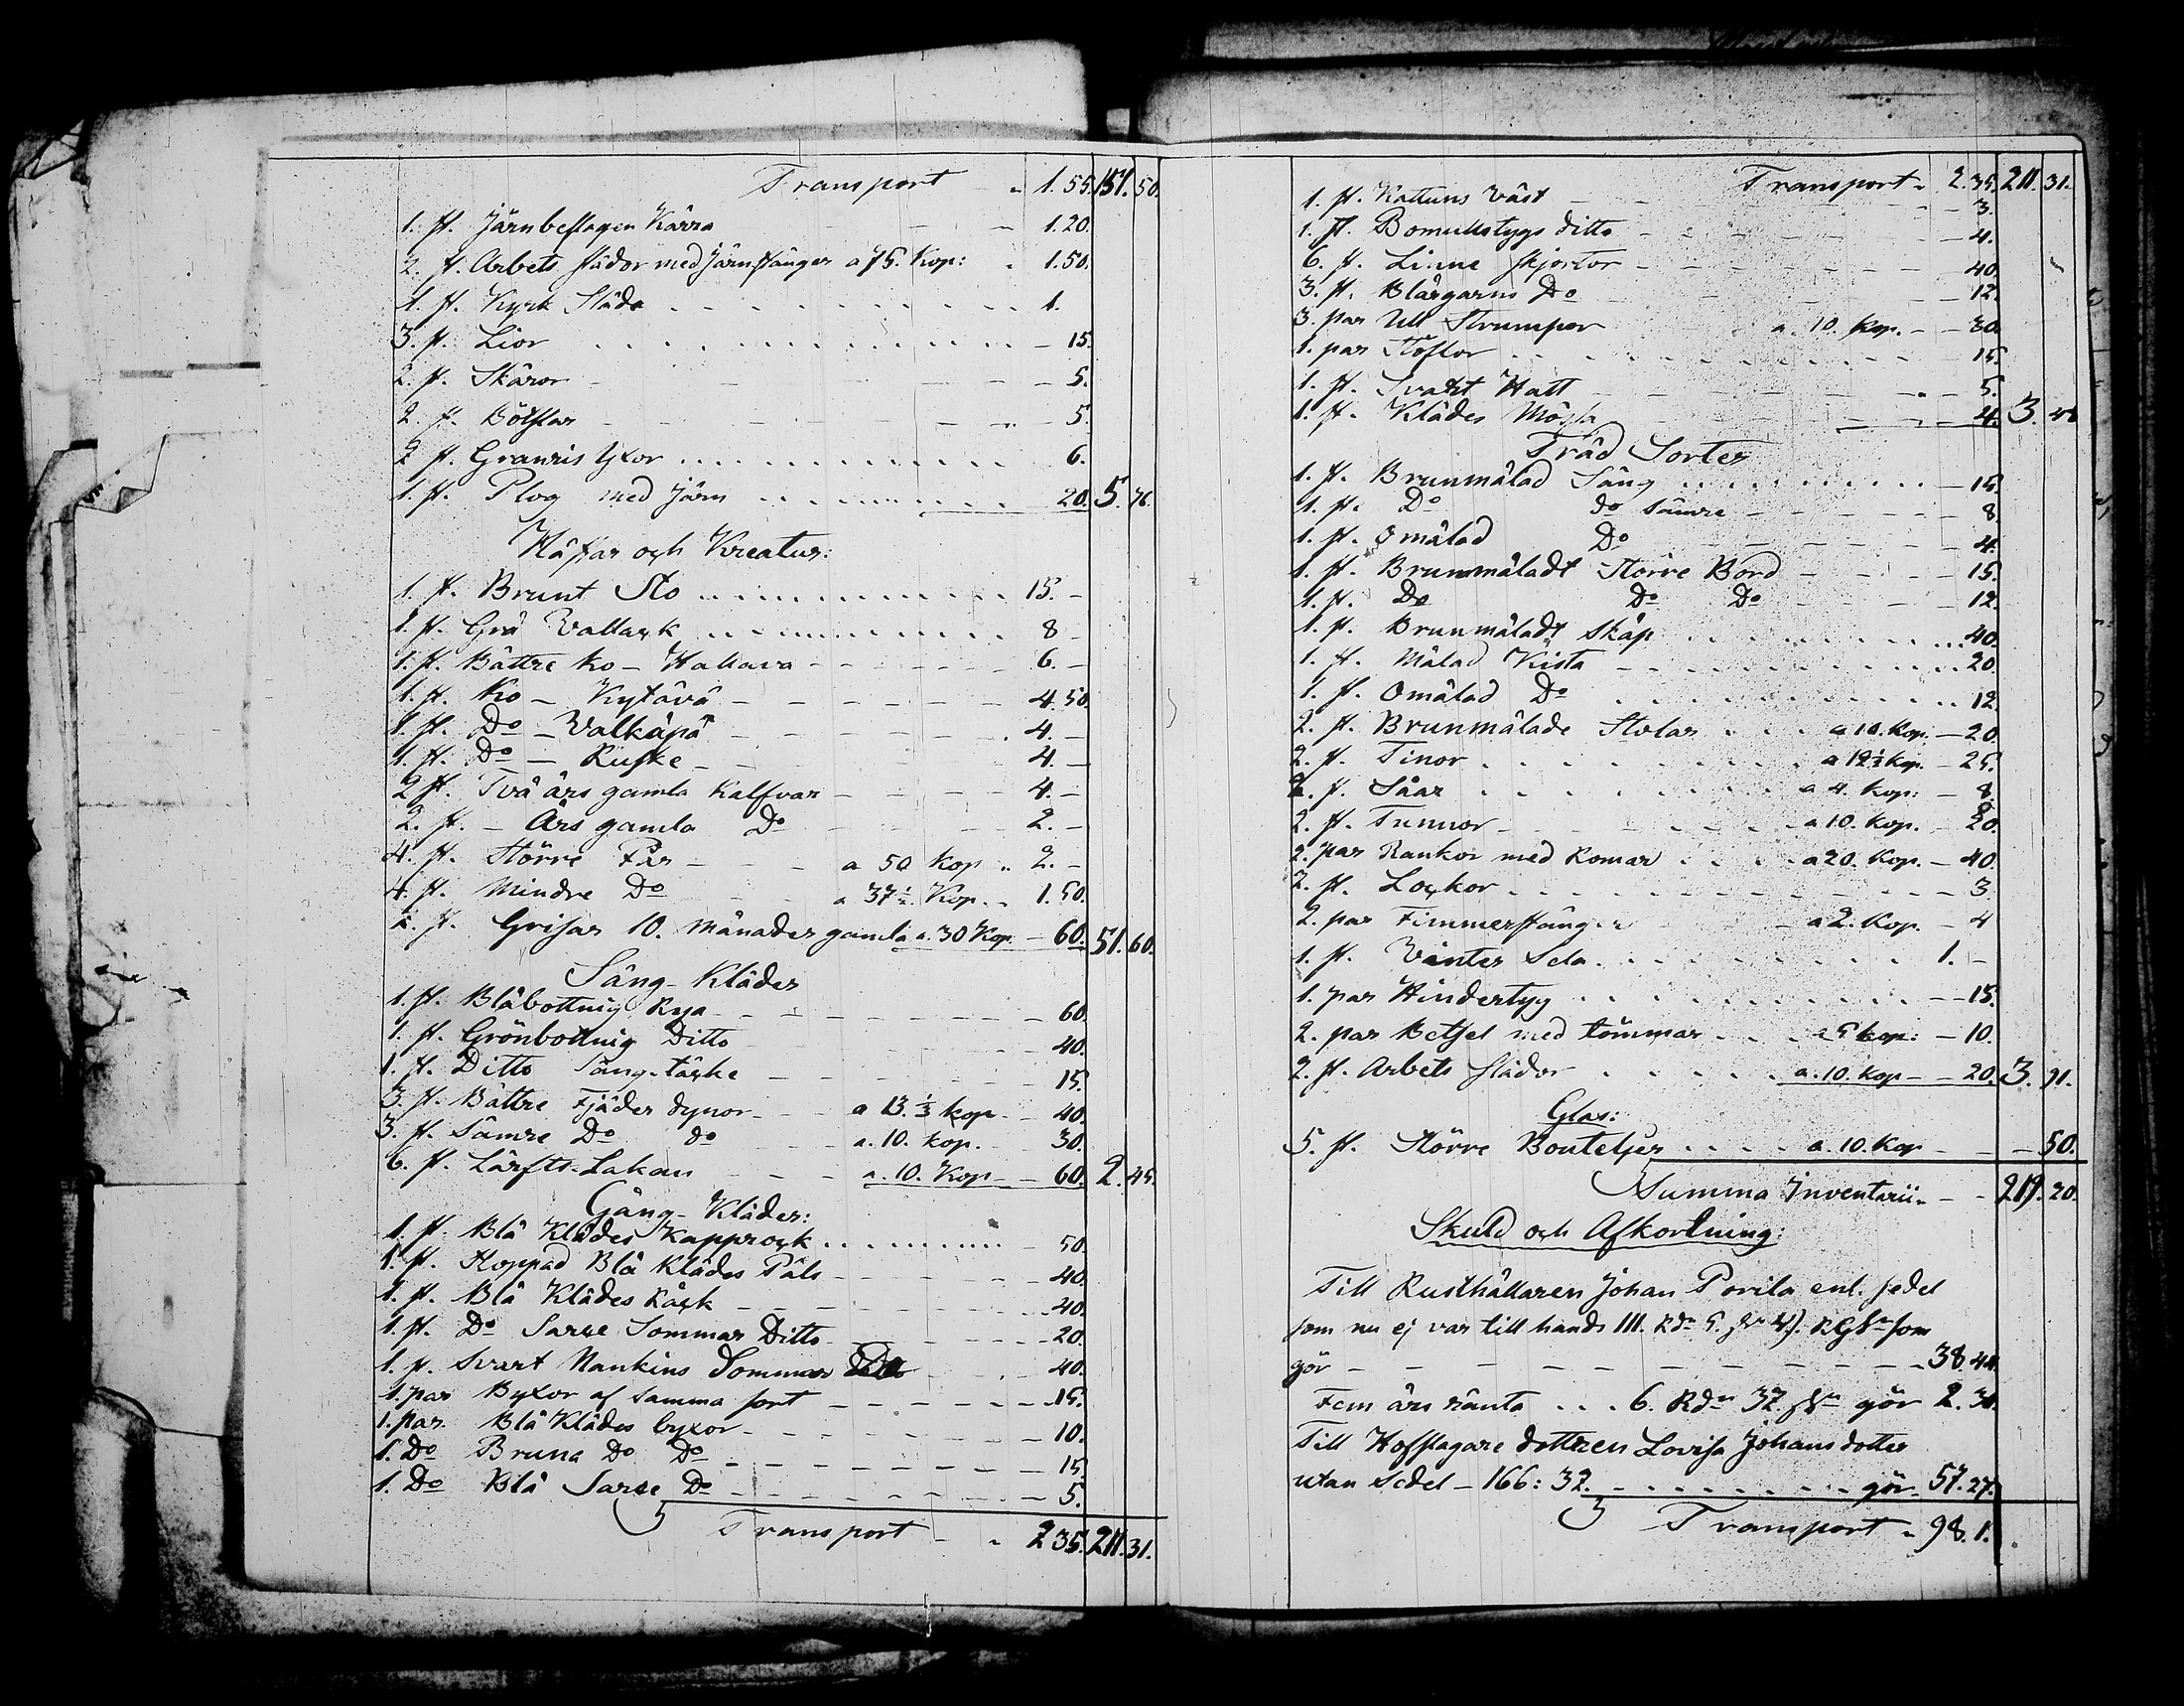 Transport - 1.55. 151. 50.
1. st. Järnbeslagen Kärra - 1.20.
2. st. Arbets slädor med Järnstänger a 75. Kop: 1.50.
1. st. Kyrk Släda 1.
3. st. Lior 15.
2. st. Skäror 5.
2. st. 5.
2 st. Granris Yxor 6.
1. st. Plog med Järn 20. 5. 76.
Hästar och Kreatur:
1. st. Brunt Sto 15. -
1. st. Grå Vallack 8 -
1. st. Bättre Ko - Hallava 6. -
1. st. Ko - Kytävä 4. 50.
1. st. Do - Valkäpä 4. -
1. st. Do - Ruske 4. -
2 st. Två års gamla Kalfvar 4. -
2. st. - Års gamla Do 2. -
4. st. Större Får a 50 Kop 2. -
4. st. Mindre Do a 37 1/2 Kop. 1. 50.
2. st. Grisar 10. Månader gamla a. 30 Kop. - 60. 51. 60.
Säng-Kläder
1. st. Blåbottnig Rya 60.
1. st. Grönbottnig Ditto 40.
1. st. Ditto Säng-täcke 15.
3. st. Bättre Fjäder dynor a 13. 1/3 kop - 40.
3. st. Sämre Do do a. 10. kop. 30.
6. st. Lärfts-Lakan a. 10. Kop - 60. 2. 45.
Gång-Kläder:
1. st. Blå Klädes Kapprock 50.
1. st. Stoppad Blå Klädes Päls 40.
1. st. Blå Klädes Råck 40.
1. st. Do Sarse Sommar Ditto 20.
1. st. Svart Nankins Sommar Do 40.
1. par Byxor af samma sort 15.
1. par Blå Klädes byxor 10.
1. Do Bruna Do Do 15.
1. Do Blå Sarse Do 5.
Transport - 2 35. 211. 31.
Transport - 2. 35. 211. 31.
1. st. Kattuns Väst 3.
1. st. Bomullstygs ditto 4.
6. st. Linne skjortor 40.
3. st. Blårgarns Do 12.
3. par Ull Strumpor a. 10. Kop. - 30.
1. par Stöflor 15.
1. st. Svart Hatt 5.
1. st. Klädes Mössa 4. 3.
Träd Sorter
1. st. Brunmålad Säng 15.
1. st. Do do Sämre 8.
1. st. Omålad Do 4.
1. st. Brunmåladt Större Bord 15.
1. st. Do Do Do 12.
1. st. Brunmåladt Skåp 40.
1. st. Målad Kista 20.
1. st. Omålad Do 12.
2. st. Brunmålade Stolar a 10. Kop. - 20
2. st. Tinor a 12 1/2 Kop. - 25.
2. st. Såar a 4. Kop: - 8.
2. st. Tunnor a 10. Kop. - 20.
2. par Rankor med Romar a 20. Kop. - 40.
2. st. Lockor 3.
2. par Timmerstänger a 2. Kop. - 4
1. st. Vinter Sela 1. -
1. par Hindertyg - 15.
2. par Betsel med tömmar a 5 kop: - 10.
2. st. Arbets slädor a. 10. kop - 20. 3. 91.
Glas:
5. st. Större Bouteljer a. 10. Kop - 50.
Summa Inventarii - 219. 20.
Skuld och Afkortning:
Till Rusthållaren Johan Porila enl. sedel
som nu ej var till hands 111. Rdr 5. RGs som
gör 38. 44.
Fem års ränta 6. Rdr 32 gör 2. 30.
Till Hofslagare dottren Lovisa Johansdotter
utan Sedel - 166: 32. gör 57. 27.
Transport - 98. 1.